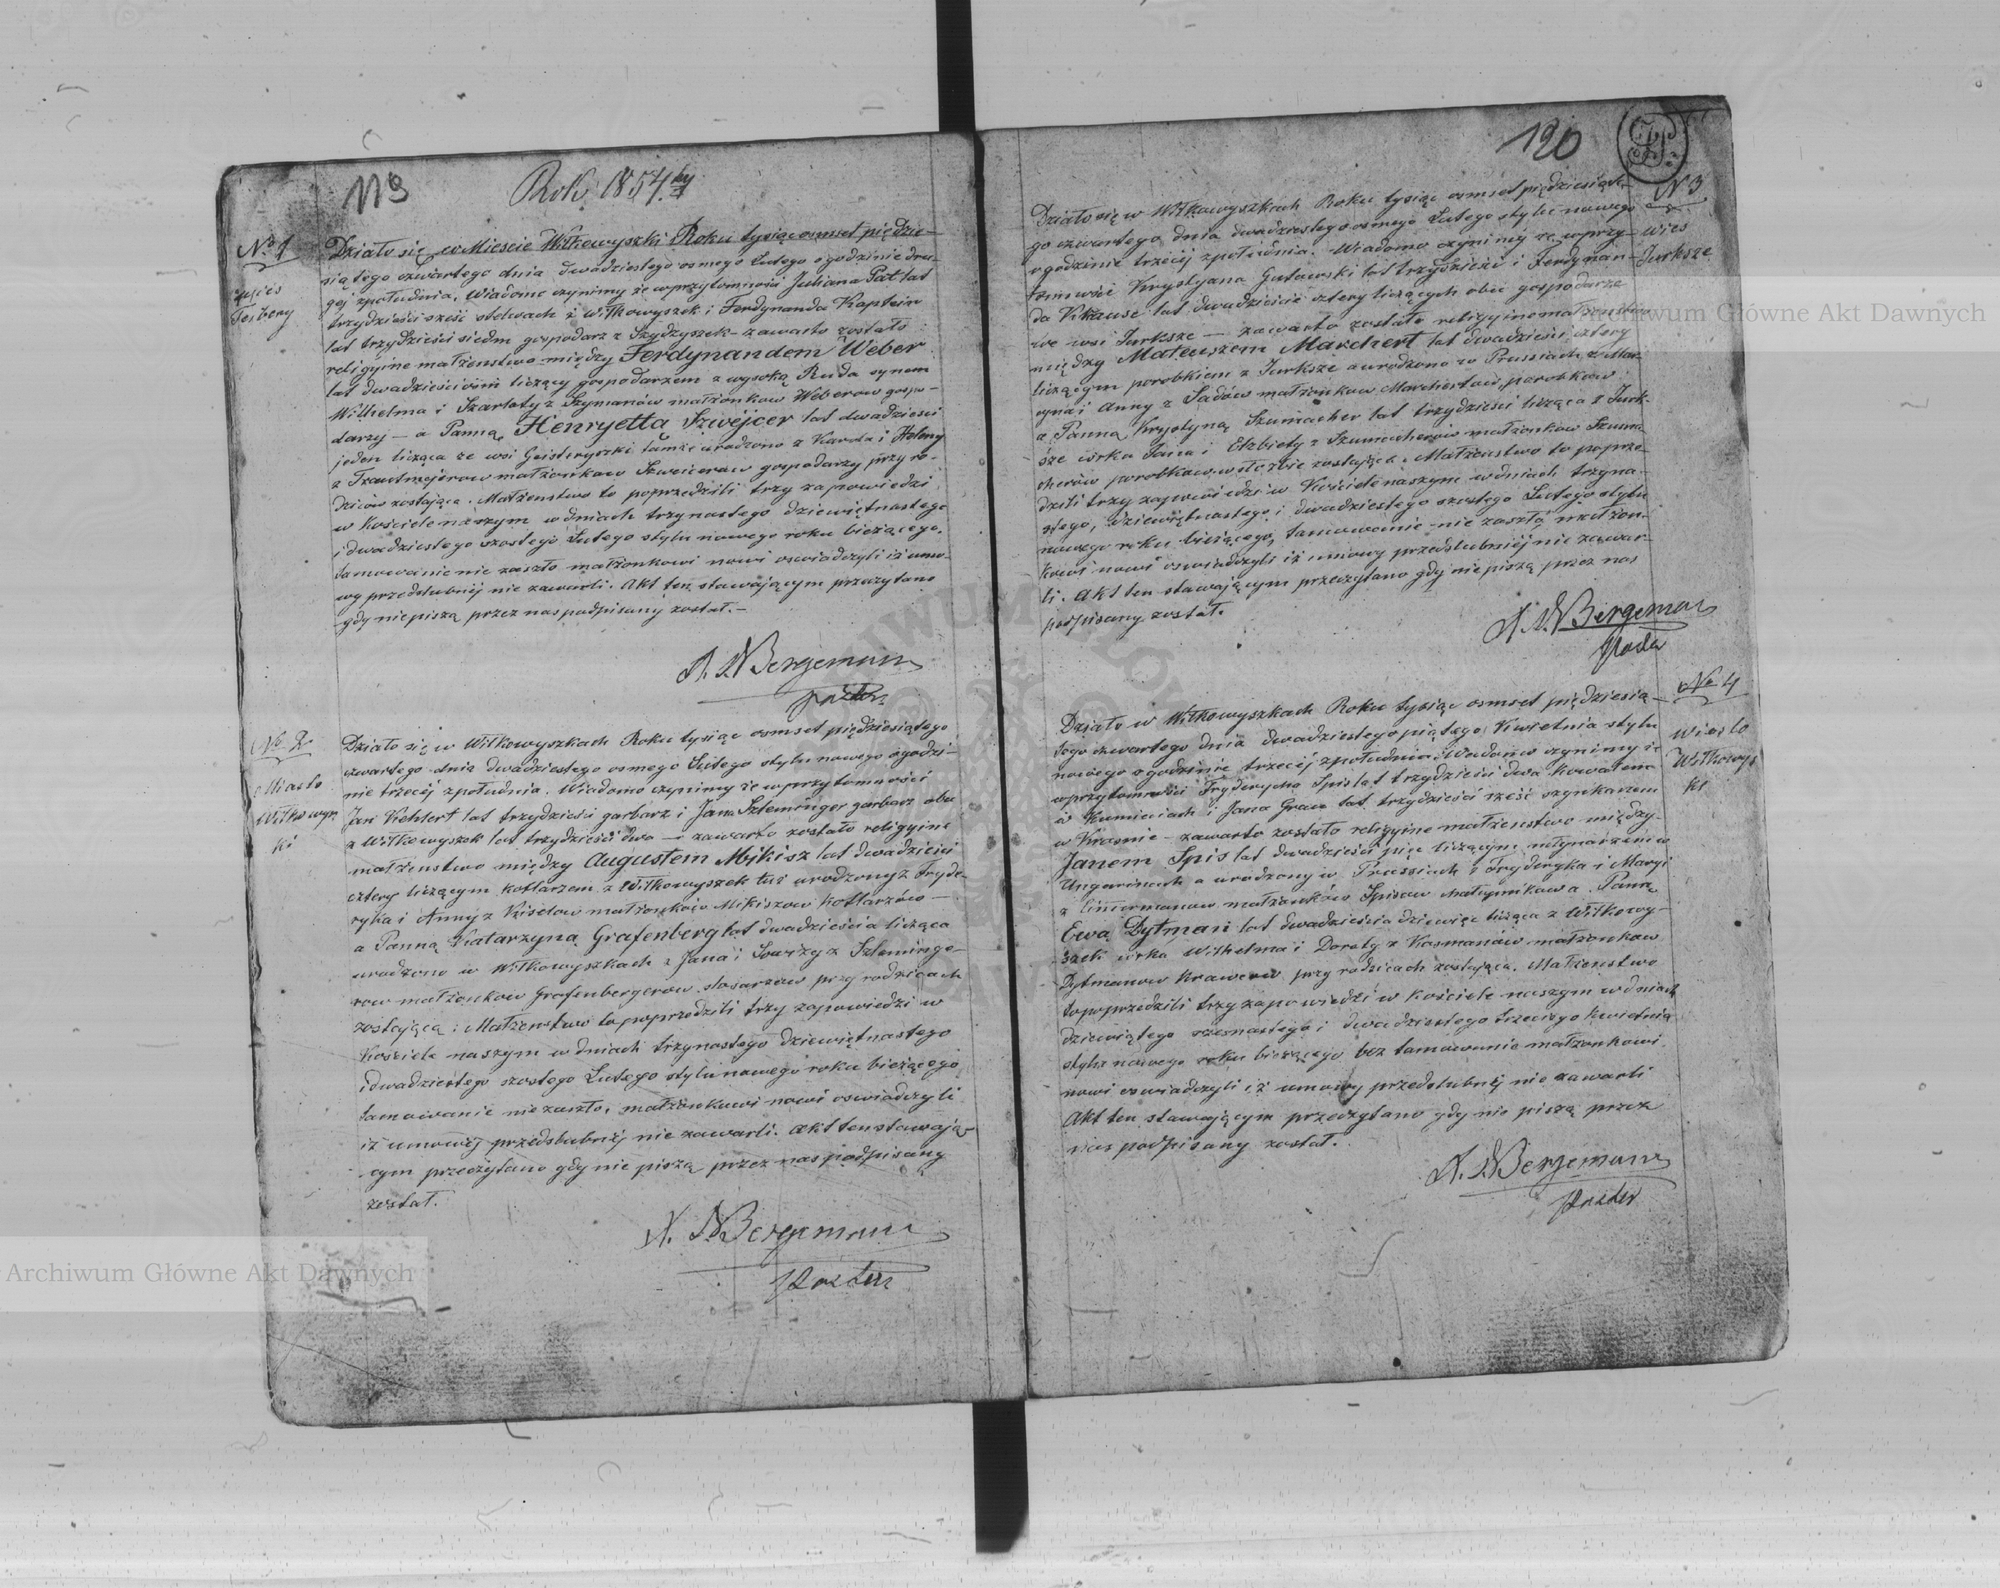 119
Rok 1854ty
No 1
wieś
Działo się w Mieście Wiłkowyszki Roku tysiąc osmset piędzie-
siątego czwartego dnia dwudziestego osmego Lutego o godzinie dru-
giej z południa. Wiadomo czynimy że w przytomności Juliana Pat lat
trzydzieści sześć stelmach z Wiłkowyszek i Ferdynanda Kaptein
lat trzydzieści siedm gospodarz z Szydzyszek – zawarte zostało
religyine małżenstwo między Ferdynandem Weber
lat dwadzieścia liczący gospodarzem z wysoką Ruda synem
Wilhelma i Szarloty z Szymanów małżonkow Weberow gospo-
darzy – a Panną Henryetta Szwejcer lat dwadziescia
jeden licząca ze wsi Geisteryszki tamże urodzona z Karola i Heleny
z Trautmejerow małżonkow Szweicerow gospodarzy przy ro-
dzicow zostająca. Małżenstwo to poprzedzili trzy zapowiedzi
w Kościele naszym w dniach trzynastego dziewiętnastego
i dwudziestego szostego Lutego stylu nowego roku bieżącego.
tamowanie nie zaszło małżonkowi nowi oswiadczyli iż umo-
wy przedslubnéj nie zawarli. Akt ten stawającym przeczytano
gdy niepiszą przez nas podpisany został.–
A. W Bergemann
pastor
No 2
Miasto
Wiłkowysz
ki
Działo się w Wiłkowyszkach Roku tysiąc osmset piędziesiątego
czwartego dnia dwudziestego osmego Lutego stylu nowego o godzi-
nie trzeciéj z południa. Wiadomo czynimy że w przytomności
Jan Kehlert lat trzydzieści garbarz i Jana Szleminger garbarz oba
z Wiłkowyszek lat trzydzieści dwa – zawarto zostało religyine
małżenstwo między Augustem Mikisz lat dwadzieści
cztery liczącym kotlarzem z Wiłkowyszek tuż urodzony z Fryde-
ryka i Anny z Kisielow małżonków Mikiszow Kotlarzów –
a Panną Katarzyną Grafenberg lat dwadzieścia licząca
urodzona w Wiłkowyszkach z Jana i Lowizy z Szleminge-
row małżonkow Grafenbergerow slosarzow przy rodzicach
zostającą. Małżenstwo to poprzedzili trzy zapowiedzi w
Kościele naszym w dniach trzynastego dziewiętnastego
i dwudziestego szostego Lutego stylu nowego roku bieżącego
tamowanie nie zaszło, małżonkowi nowi oswiadczyli
iż umowéj przedslubnéj nie zawarli. Akt ten stawają-
cym przeczytano gdy nie piszą przez nas podpisany
został.
A. W Bergemann
Pastor
120
N 3
Wies
Jurksze
Działo się w Wiłkowyszkach Roku tysiąc osmset pięćdziesiąte-
go czwartego dnia dwudziestego osmego Lutego stylu nowego
o godzinie trzeciéj z południa. Wiadomo czynimy że w przy-
tomności Krystyana Gutowski lat trzydzieści i Ferdynan-
da Krause lat dwadzieście cztery liczących obu gospodarze
we wsi Jurksze – zawarto zostało religyine małżenstwo
między Mateuszem Marchert lat dwadzieści cztery
liczącym porobkiem z Jurksze a urodzono w Prussiach z Mar-
cyna i Anny z Sadów małżonkow Marchertow, porobkow
a Panną Krystyną Szumacher lat trzydzieści licząca z Jurk-
sze corka Jana i Elzbiety z Szumacherow małżonkow Szuma-
cherów porobkow w służbie zostająca. Małżenstwo to poprze-
dzili trzy zapowiedzi w Kościele naszym w dniach trzyna-
stego, dziewiętnastego i dwudziestego szostego Lutego stylu
nowego roku bieżącego, tamowanie nie zaszło, małżon-
kowi nowi oswiadczyli iż umowy przedslubniéj nie zawar-
li. Akt ten stawającym przeczytano gdy niepiszą przez nas
podpisany został.
A. W Bergeman
Pastor
No 4
Miasto
Wiłkowysz
ki
Działo w Wiłkowyszkach Roku tysiąc osmset pięćdziesią-
tego czwartego dnia dwudziestego piątego Kwietnia stylu
nowego o godzinie trzeciéj z południa Wiadomo czynimy że
w przytomności Fryderycha Spis lat trzydzieści dwa kowalem
w Kumieciach i Jana Grau lat trzydzieści sześć szynkarzem
w Krasnie – zawarto zostało religyine małżenstwo między
Janem Spis lat dwadzieści pięć liczącym, młynarzem w
Ungarinach a urodzony w Prussiach z Fryderyka i Maryi
z Cimermanow małżonków Spisow a Panną
Ewą Dytman lat dwadzieścia dziewięc licząca z Wiłkowy-
szek córka Wilhelma i Doroty z Kasmanów małżonkow
Dytmanow Krawcow przy rodzicach zostająca. Małżenstwo
to poprzedzili trzy zapowiedzi w kościele naszym w dniach
dziewiątego szesnastego i dwudziestego trzeciego kwietnia
stylu nowego roku bieżącego bez tamowania małżonkowi
nowi oswiadczyli iż umowy przedslubnéj nie zawarli
Akt ten stawającym przeczytano gdy nie piszą przez
nas podpisany został.
A. W Bergemann
Pastor
Archiwum Główne Akt Dawnych
Archiwum Główne Akt Dawnych